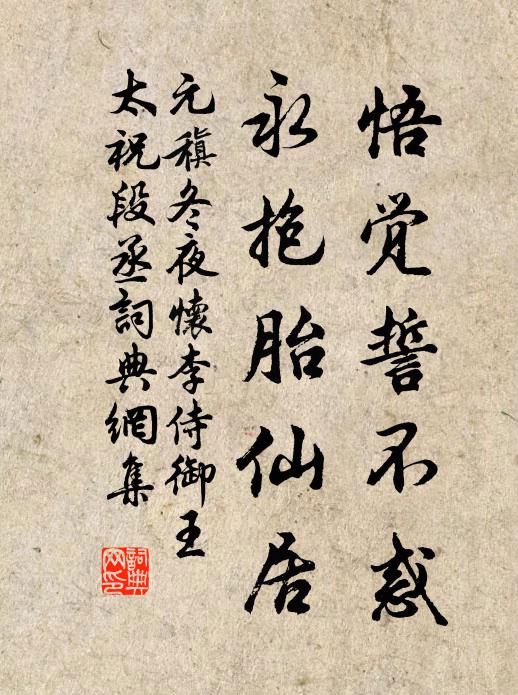 悟觉誓不惑
永抱胎仙居
元稹冬夜懷李侍御王
太祝段丞詞典網集
詞典网印